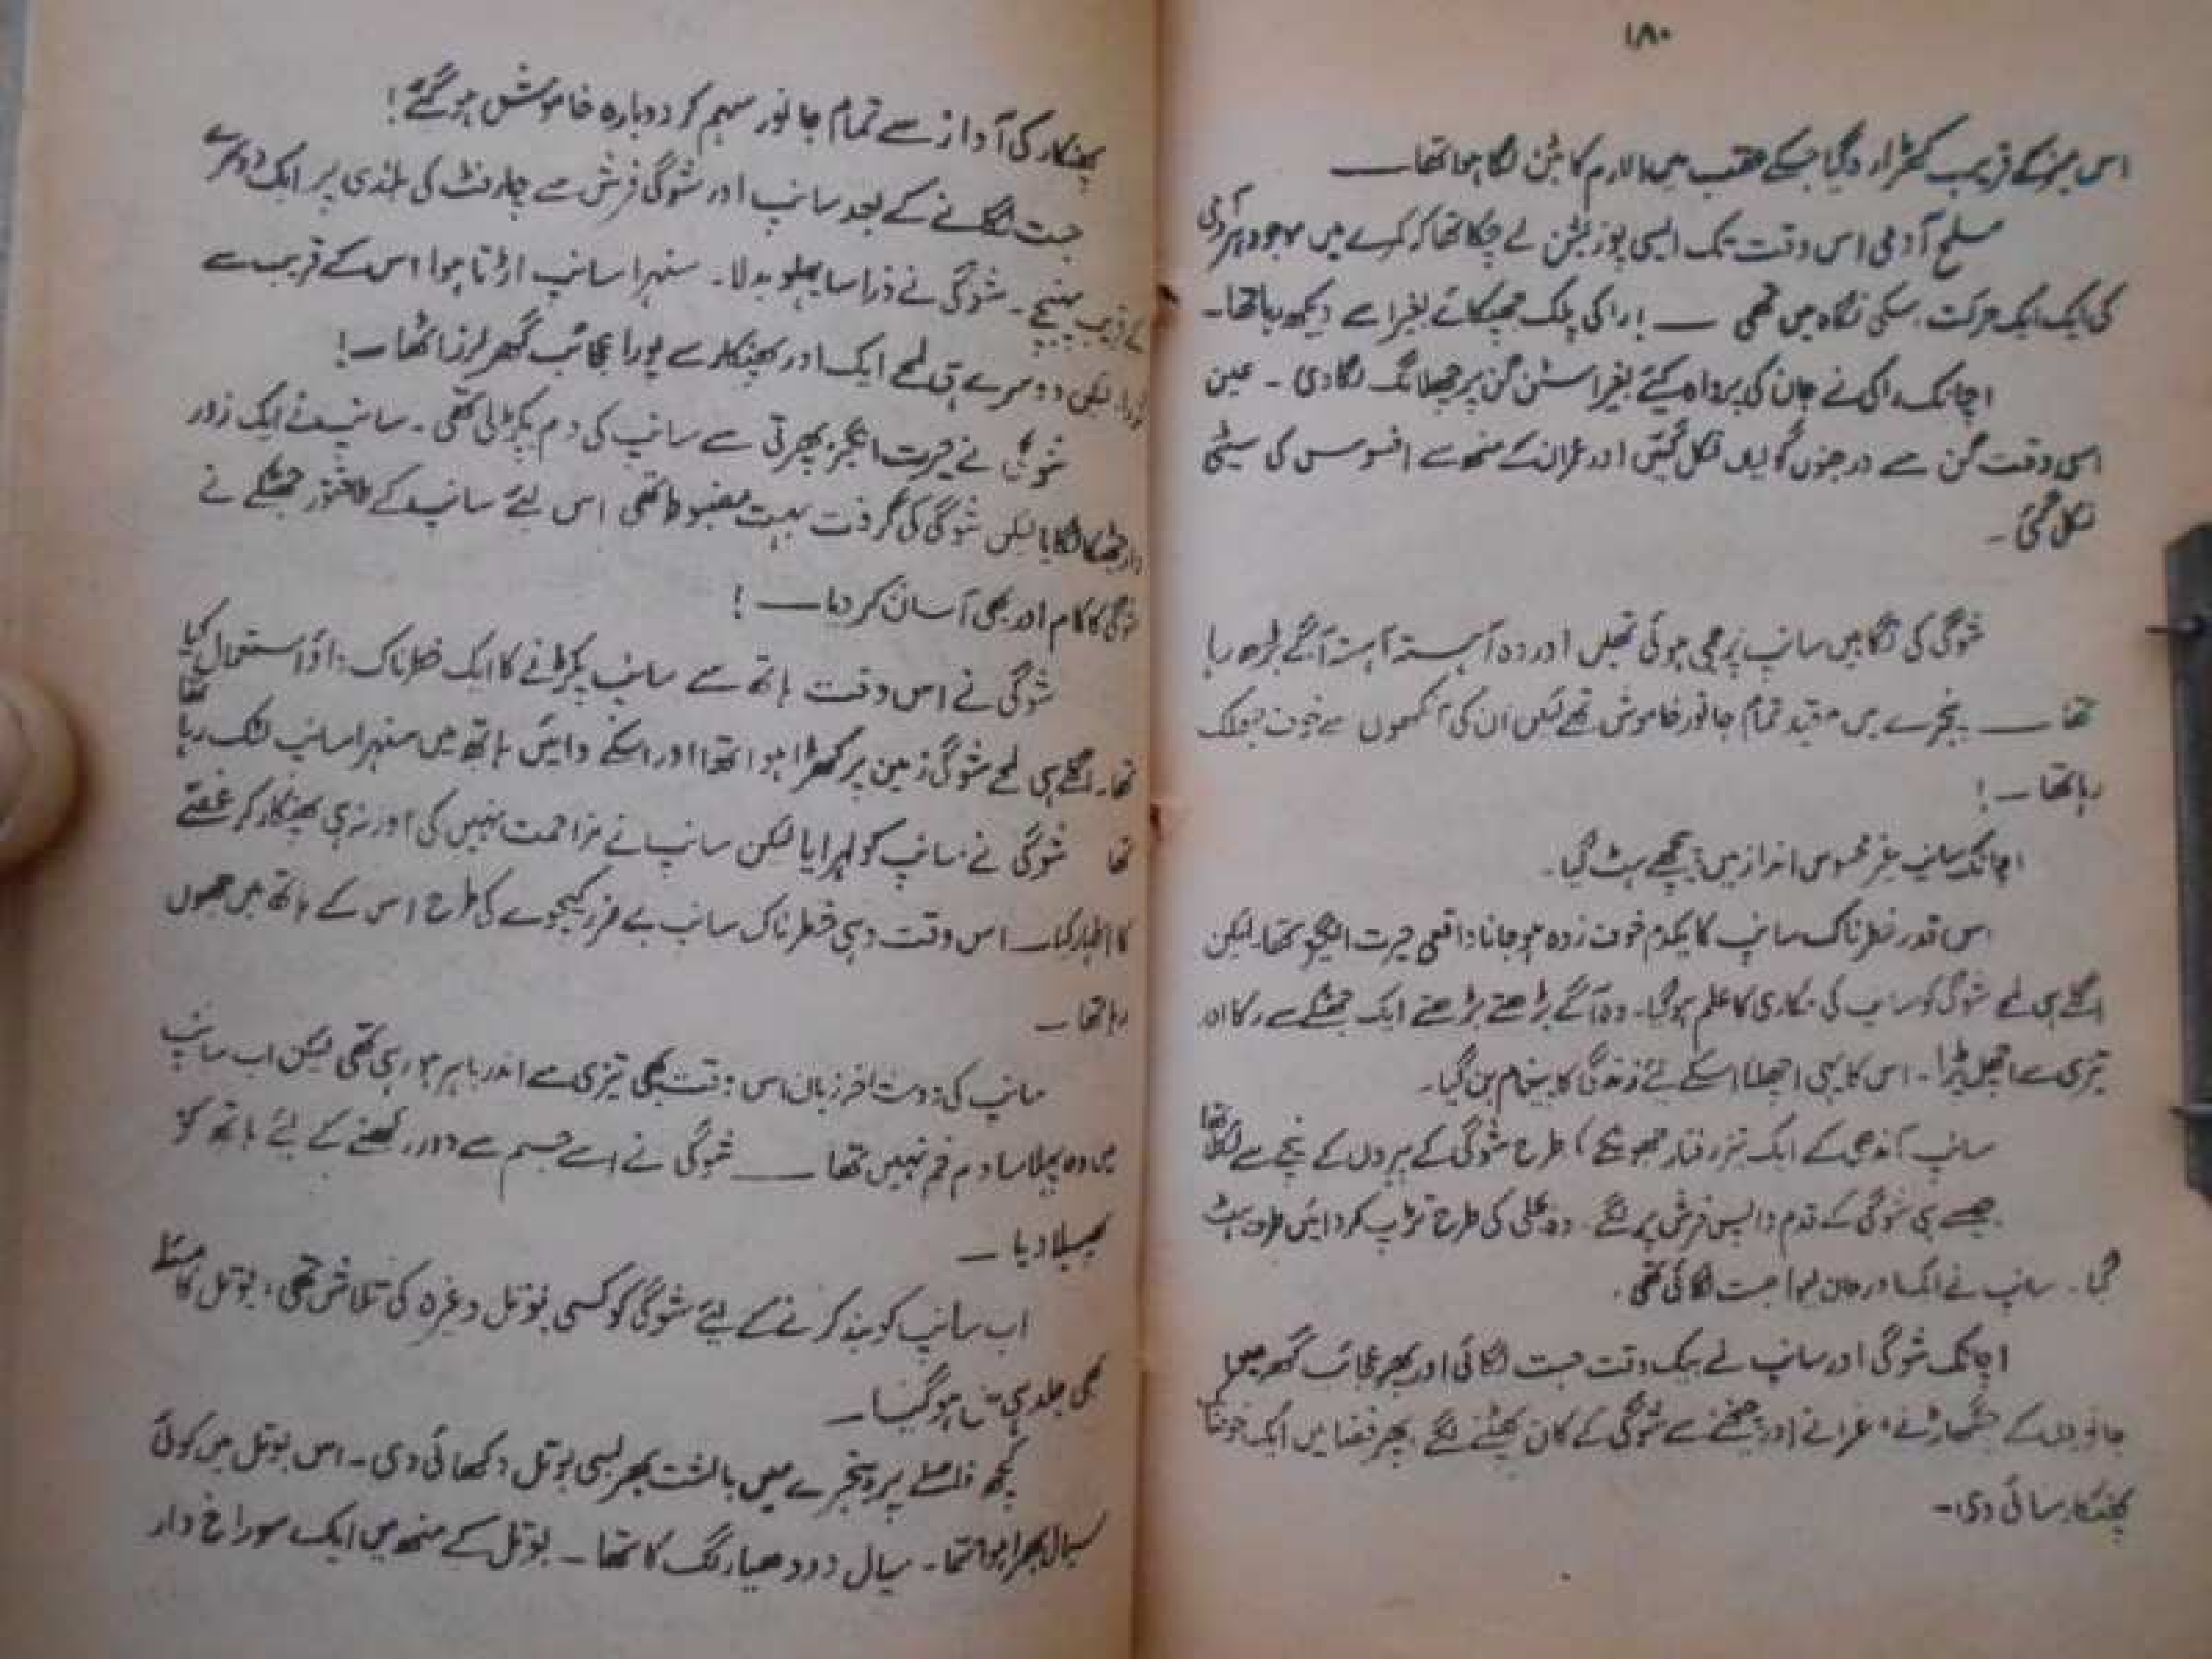 ۱۸۰
اس میز کے قریب کھڑا رہ گیا جسکے عقب میں الارم کا بٹن لگا ہوا تھا۔
مسلح آدمی اس وقت تک ایسی پوزیشن لے چکا تھا کہ کمرے میں موجود ہر آدمی
کی ایک ایک حرکت اسکی نگاہ میں تھی ـــــ راکی پلک جھپکائے بغیر اسے دیکھ رہا تھا۔
اچانک راکی نے جان کی پرواہ کیے بغیر اسٹن گن پر چھلانگ لگا دی ۔ عین
اسی وقت گن سے درجنوں گولیاں نکل گئیں اور عمران کے منھ سے افسوس کی سیٹی
نکل گئی ۔
شوگی کی نگاہیں سانپ پر جمی ہوئی تھیں اور وہ آہستہ آہستہ آگے بڑھ رہا
تھا ـــــ پنجرے میں مقید تمام جانور خاموش تھے لیکن ان کی آنکھوں سے خوف جھلک
رہا تھا ـــ !
اچانک سانپ غیر محسوس انداز میں پیچھے ہٹ گیا۔
اس قدر خطرناک سانپ کا یکدم خوف زدہ ہو جانا واقعی حیرت انگیز تھا۔ لیکن
اگلے ہی لمحے شوگی کو سانپ کی مکاری کا علم ہو گیا۔ وہ آگے بڑھتے بڑھتے ایک جھٹکے سے رکا اور
تیزی سے اچھل پڑا ۔ اس کا یہی اچھلنا اسکے لئے زندگی کا پیغام بن گیا۔
سانپ آندھی کے ایک تیز رفتار جھونکے کی طرح شوگی کے پیروں کے نیچے سے نکلا تھا
جیسے ہی شوگی کے قدم واپس فرش پر لگے ۔ وہ بجلی کی طرح تڑپ کر دائیں طرف ہٹ
گیا ۔ سانپ نے ایک اور جان لیوا جست لگائی تھی ۔
اچانک شوگی اور سانپ نے بیک وقت جست لگائی اور پھر عجائب گھر میں
جانوروں کے چنگھاڑنے، غرانے اور چیخنے سے شوگی کے کان پھٹنے لگے ۔ پھر فضا میں ایک خوفناک
پھنکار سنائی دی۔
پھنکار کی آواز سے تمام جانور سہم کر دوبارہ خاموش ہو گئے !
جست لگانے کے بعد سانپ اور شوگی فرش سے چار فٹ کی بلندی پر ایک دوسرے
کے قریب پہنچے ۔ شوگی نے ذرا سا پہلو بدلا ۔ سنہرا سانپ اڑتا ہوا اس کے قریب سے
گزرا۔ لیکن دوسرے ہی لمحے ایک اور پھنکار سے پورا عجائب گھر لرز اٹھا ـــ !
شوگی نے حیرت انگیز پھرتی سے سانپ کی دم پکڑ لی تھی ۔ سانپ نے ایک زور
دار جھٹکا لگایا لیکن شوگی کی گرفت بہت مضبوط تھی اس لئے سانپ کے طاقتور جھٹکے نے
شوگی کا کام اور بھی آسان کر دیا ـــــ !
شوگی نے اس وقت ہاتھ سے سانپ پکڑنے کا ایک خطرناک داؤ استعمال کیا
تھا۔ اگلے ہی لمحے شوگی زمین پر کھڑا ہوا تھا اور اسکے دائیں ہاتھ میں سنہرا سانپ لٹک رہا تھا
تھا شوگی نے سانپ کو لہرایا لیکن سانپ نے مزاحمت نہیں کی اور نہ ہی پھنکار کر غصے
کا اظہار کیا۔ اس وقت وہی خطرناک سانپ بے ضرر کیچوے کی طرح اس کے ہاتھ میں جھول
رہا تھا ـــ
سانپ کی زبان اس وقت بھی تیزی سے اندر باہر ہو رہی تھی لیکن اب سانپ
میں وہ پہلا سا دم خم نہیں تھا ـــــ شوگی نے اسے جسم سے دور رکھنے کے لئے ہاتھ کو
پھیلا دیا ـــ
اب سانپ کو بند کرنے کے لیئے شوگی کو کسی بوتل وغیرہ کی تلاش تھی، بوتل کا مسئلہ
بھی جلد ہی حل ہو گیا ـــ
کچھ فاصلے پر پنجرے میں بالشت بھر لمبی بوتل دکھائی دی ۔ اس بوتل میں کوئی
سیال بھرا ہوا تھا۔ سیال دودھیا رنگ کا تھا ۔ بوتل کے منھ میں ایک سوراخ دار